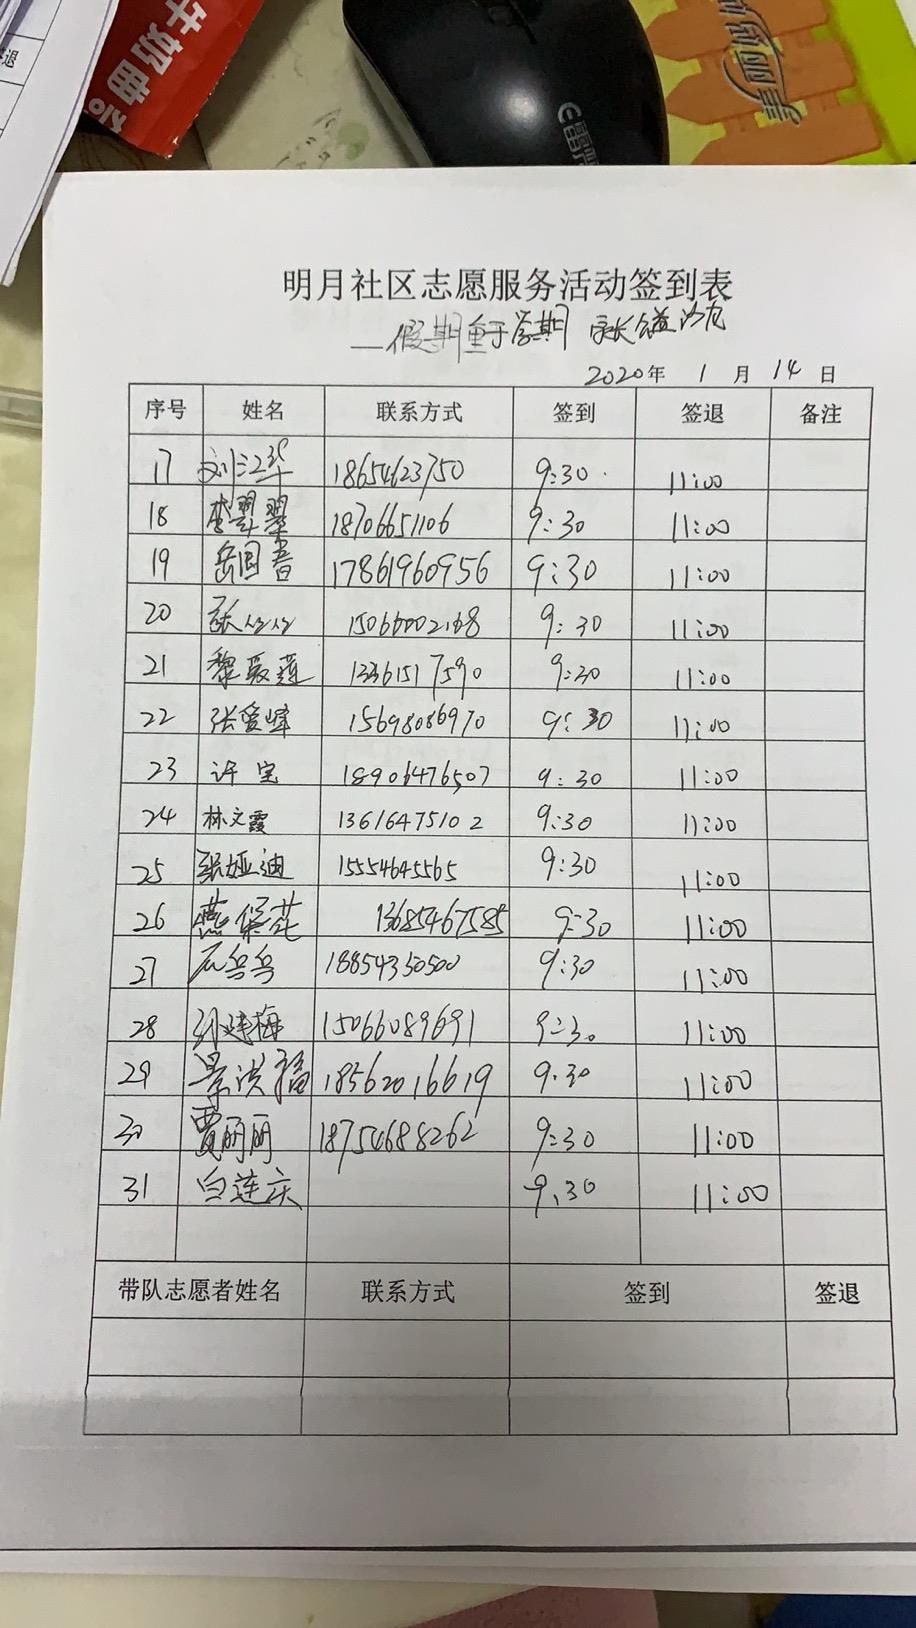 签退
牛奶曲奇
雷柏
明月社区志愿服务活动签到表
—假期重于学期 家长公益沙龙
2020年 1 月 14 日
序号 姓名 联系方式 签到 签退 备注
17 刘江华 18654623750 9:30 11:00
18 李翠翠 18706651106 9:30 11:00
19 17861960956 9:30 11:00
20 张丛丛 9:30 11:00
21 13361517590 9:30 11:00
22 张爱峰 15698086970 9:30 11:00
23 许宝 18906476507 9:30 11:00
24 林文霞 13616475102 9:30 11:00
25 张娅迪 15554645565 9:30 11:00
26 燕保花 13685467585 9:30 11:00
27 石兵兵 18854350500 9:30 11:00
28 孙建梅 15066089691 9:30 11:00
29 景洪福 18562016619 9:30 11:00
30 贾丽丽 18754688262 9:30 11:00
31 白莲庆 9:30 11:00
带队志愿者姓名 联系方式 签到 签退